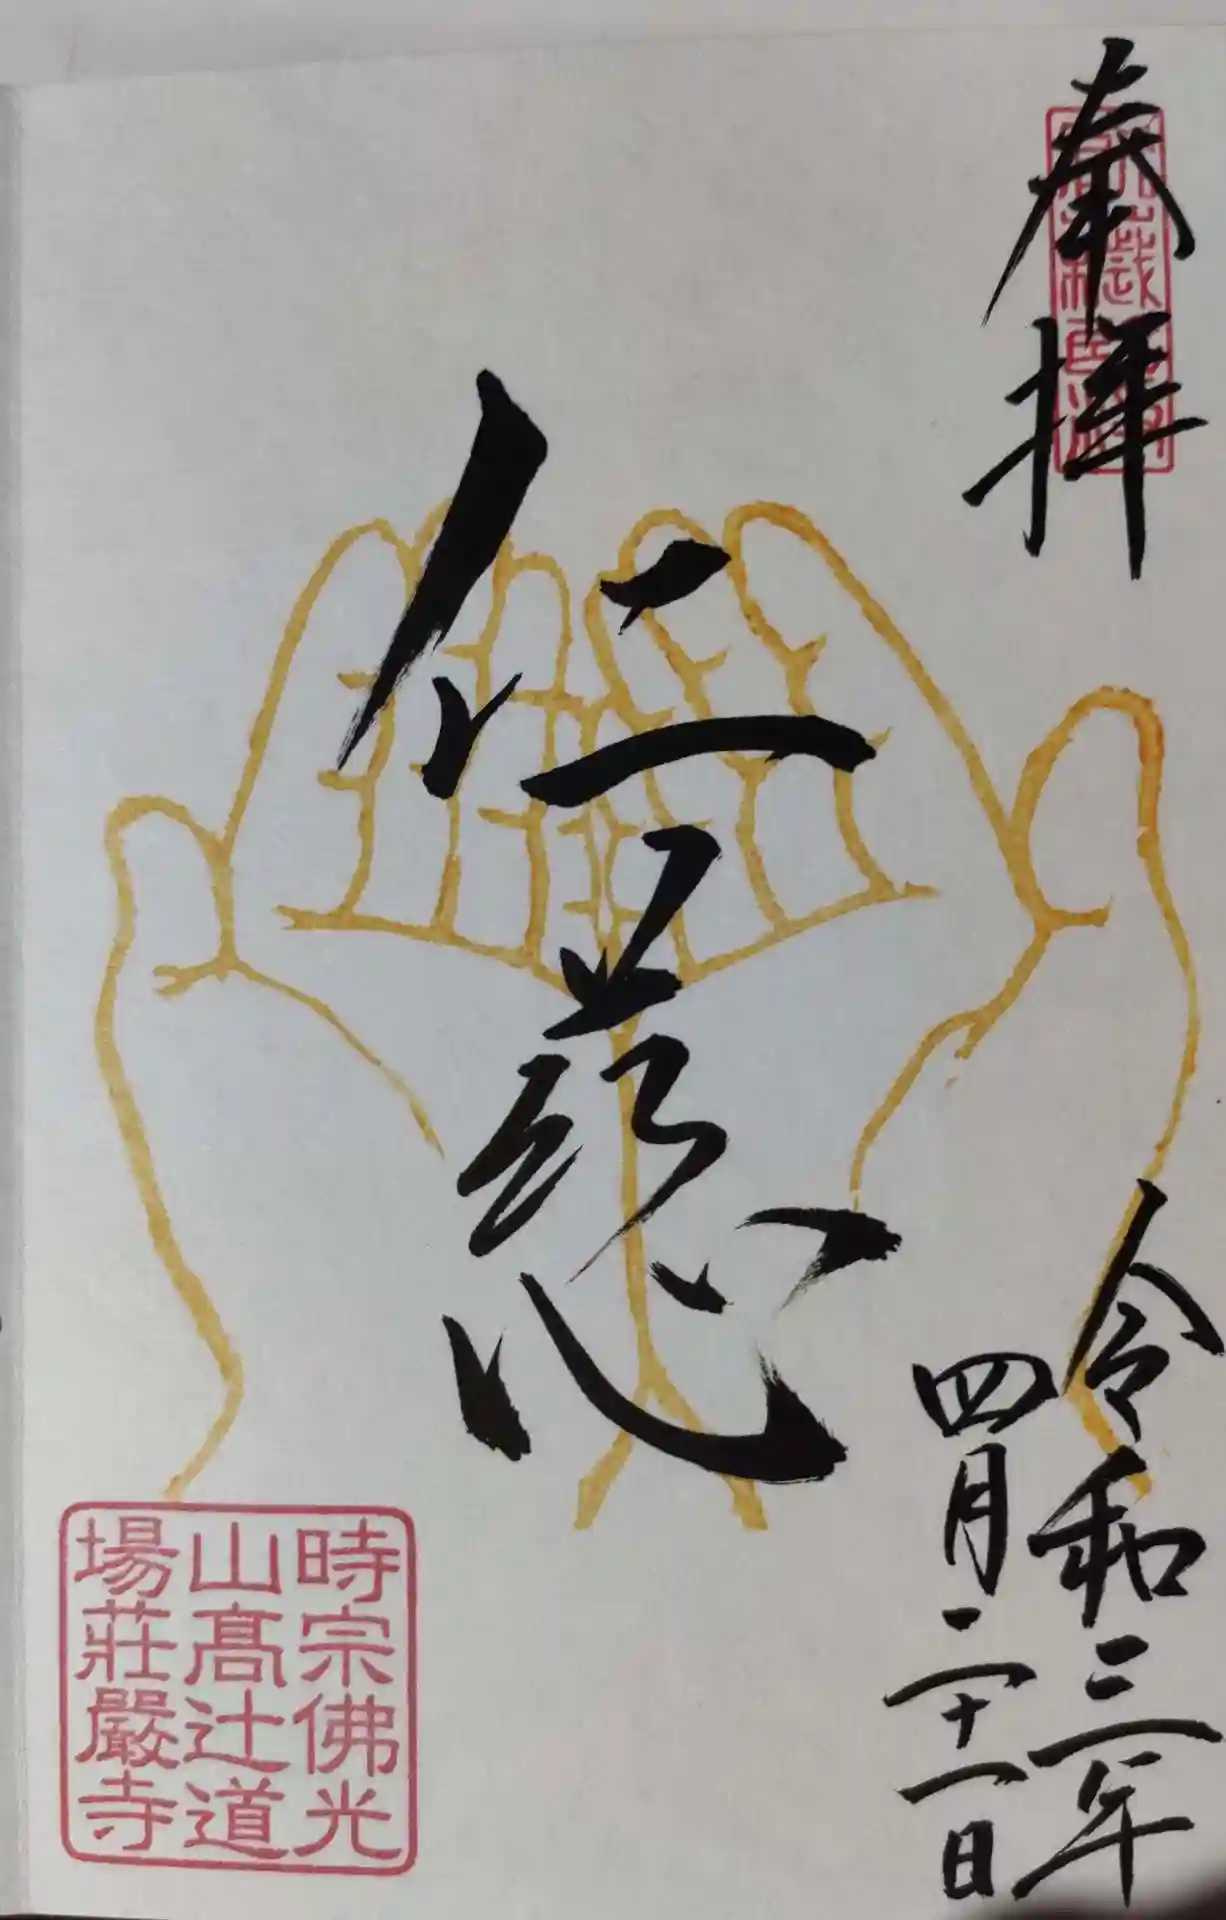 奉拝
令和三年
四月二十一日
仁慈心
時宗佛光
山髙辻道
場莊嚴寺